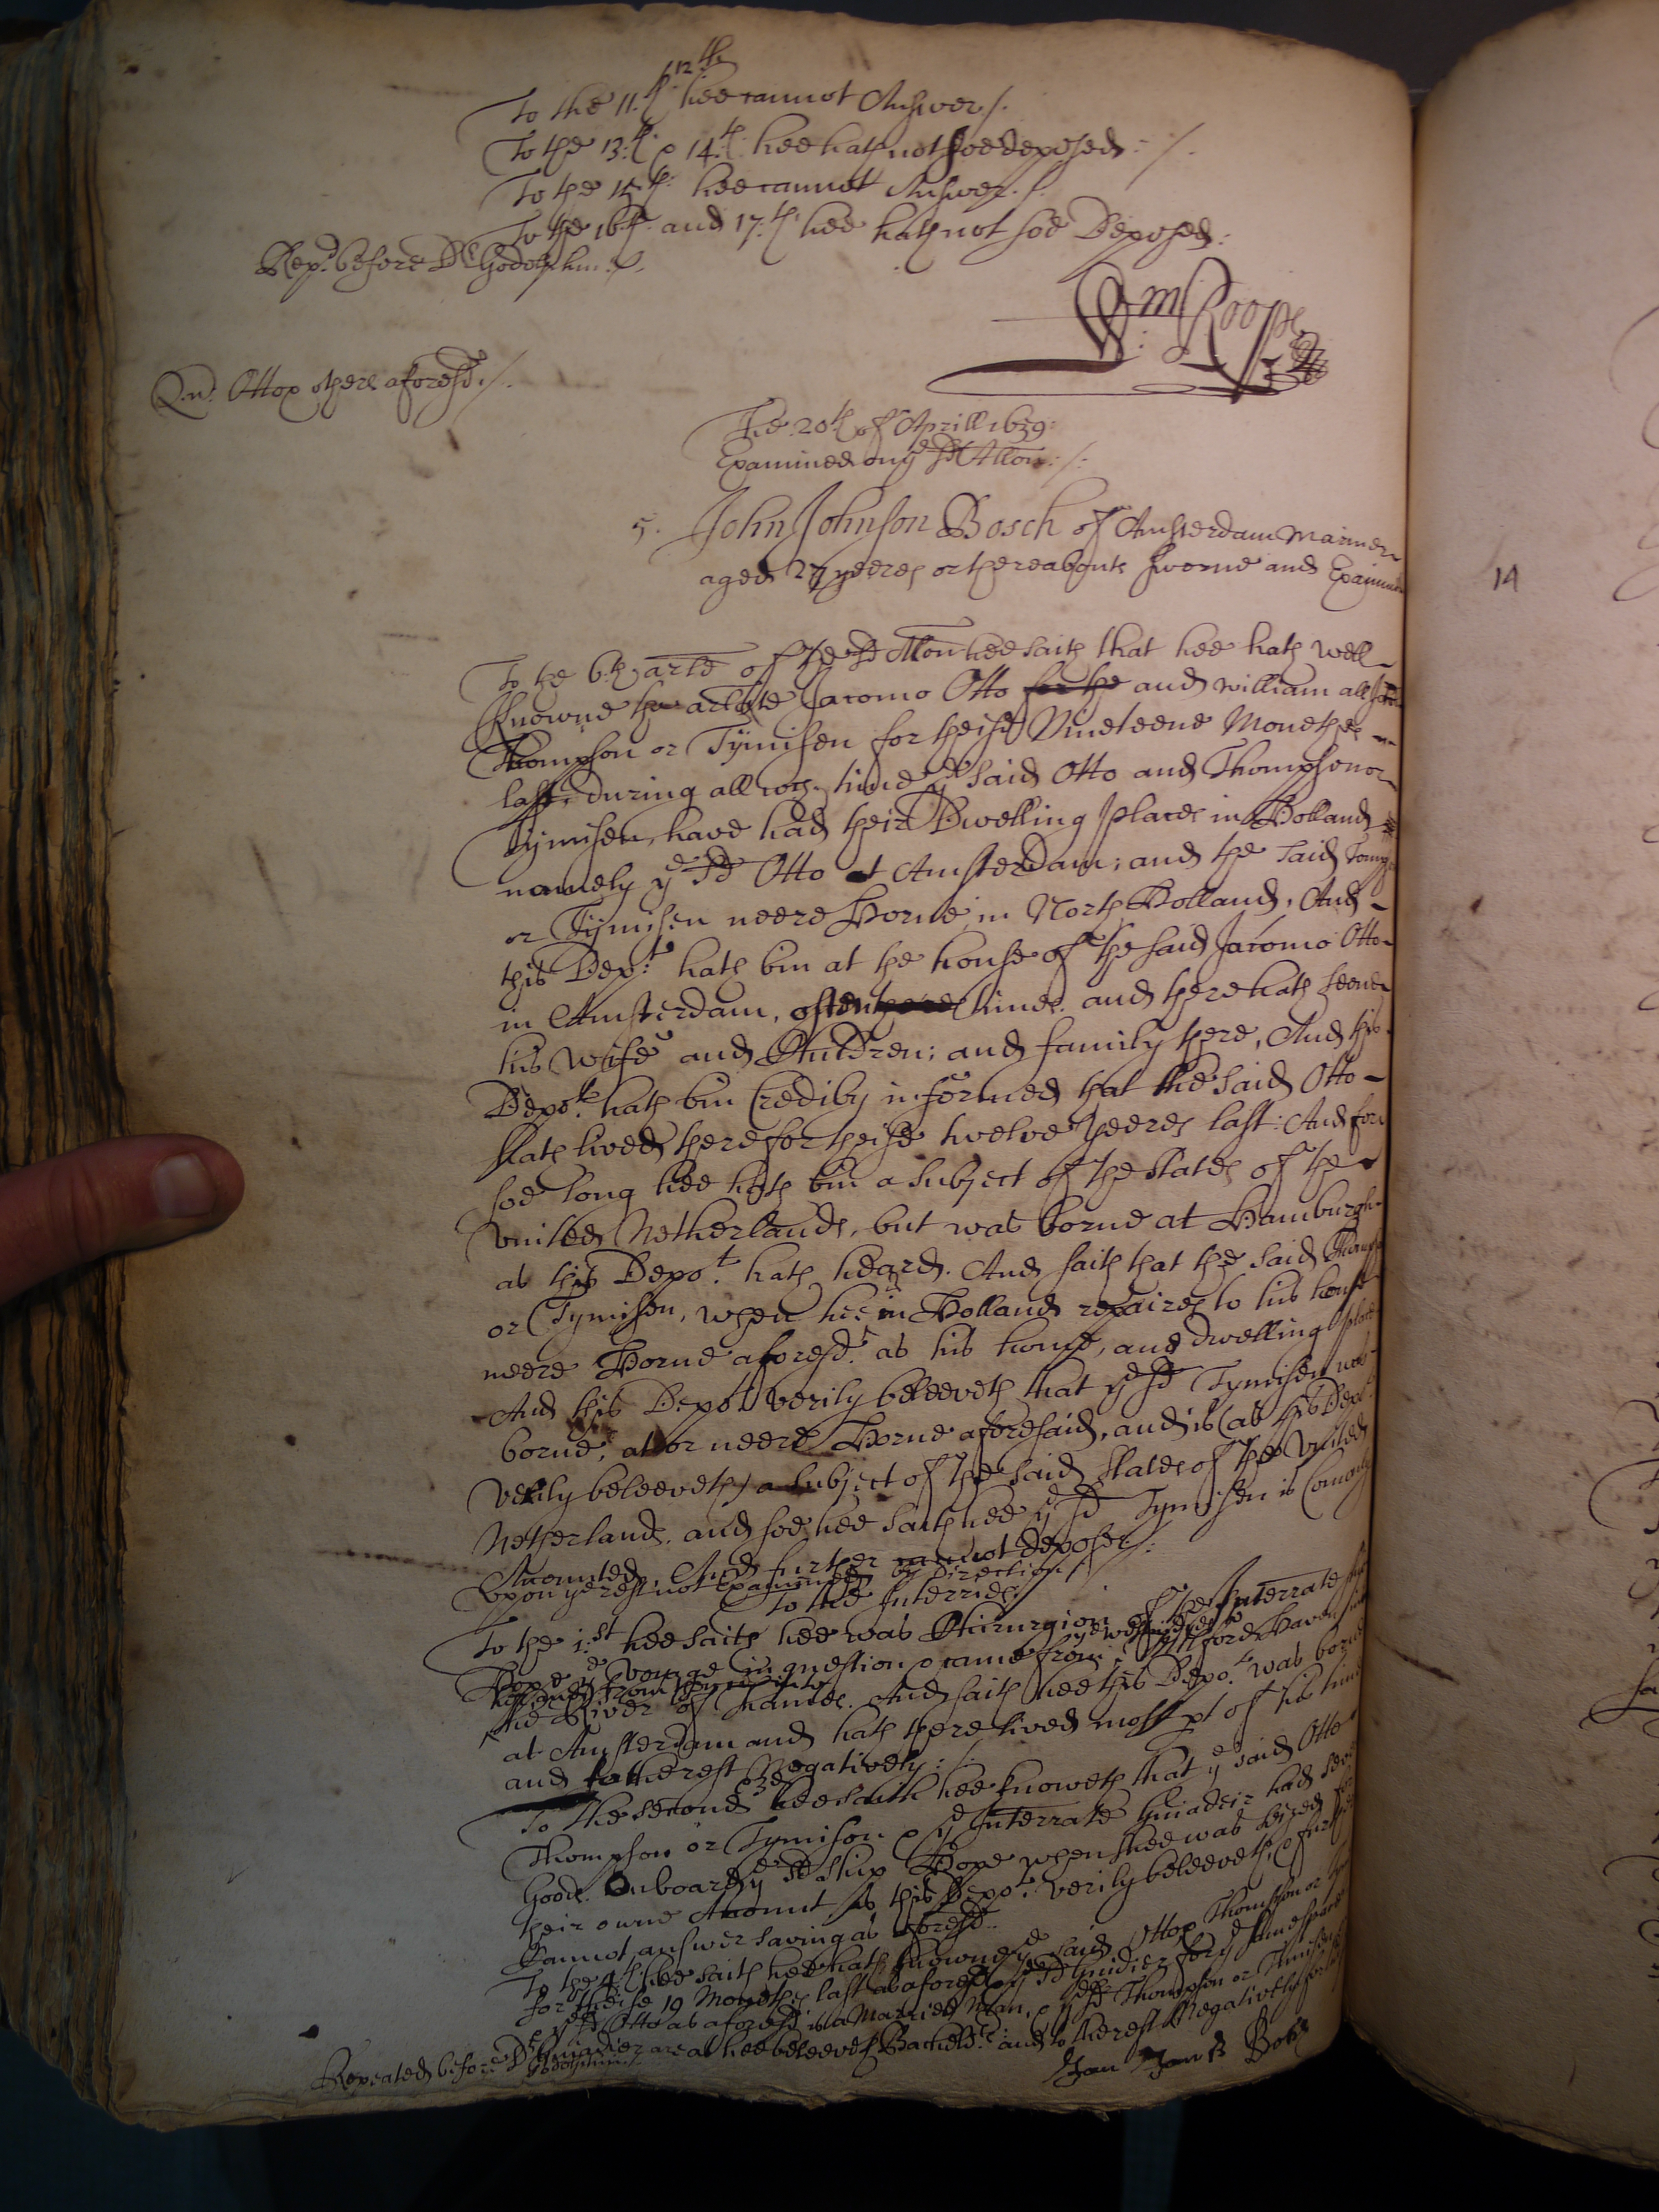 12th
To the 11.th hee cannot Answer /.
To the 13:th & 14.th hee hath not soe deposed: /.
To the 15.th: hee cannot Answer. /.
To the 16th. and 17.th hee hath not soe Deposed:
Rep.d before Dr Godolphin. /.
Wm: Roope
Qd. Otto & others aforesd. /.
The 20th of Aprill 1659:
Examined on ye sd Allon: /:
5. John Johnson Bosch of Amsterdam Mariner
aged 27 yeeres or thereabouts sworne and Examined
To the 6.th arte of the sd Allon hee saith that hee hath well
knowne the arlate Jacomo Otto for the and William
Thompson or Tymisen for theise Nineteene Moneths
last, during all wch. time ye said Otto and Thompson or
Tymisen, have had their Dwelling places in Holland
namely ye sd Otto at Amsterdam; and the said
or Tymisen neere Horne in North Holland, And
this Depo:t hath bin at the house of the said Jacomo Otto
in Amsterdam, often times. and there hath seene
his Wife and Children; and family there, And this
Depo.t hath bin Crediby informed that the said Otto
hath lived there for theise twelve yeeres last: And for
soe long hee hath bin a subject of the States of the
United Netherlands, but was borne at Hamburgh
as this Depo.t hath heard. And saith that the said Thompson
or Tymisen, when hee in Holland repaires to his house
neere Horne aforesd. as his home, and dwelling place
And this Depo.t verily beleeveth that ye sd Tymisen was
borne, at or neere Horne aforesaid, and is (as this Depo.t
verily beleeveth) a subject of the said States of the United
Netherlands. and soe hee saith hee ye sd Tymisen is Comonly
Accounted, And further cannot depose. /:
upon ye rest not Examined by direction /
To the Interries. /
To the 1.st hee saith hee was Chirurgion of the Interrate shipp
Hope ye voyage in question & came from
the River of Thames. And saith hee this Depo.t was borne
at Amsterdam and hath there lived most pt of his time
and to the rest Negatively: /.
To the second & 3d hee saith hee knoweth that ye said Otto
Thompson or Tymison & ye Interrate had
Goods Onboard ye sd ship Hope when shee was seized for
their owne Accomt as this Depo.t verily beleeveth, &
Cannot answer saving as aforesd.
To the 4th hee saith hee hath knowne ye said Otto & Thompson or
for theise 19 Moneths last as aforesd & ye sd for ye same
ye sd Otto as aforesd is a Married Man, & ye sd Thompson or
are as hee beleeves Bachelrs: and to the rest Negatively
Repeated before Dr Godolphin. /
Jan Jansz Bos
14